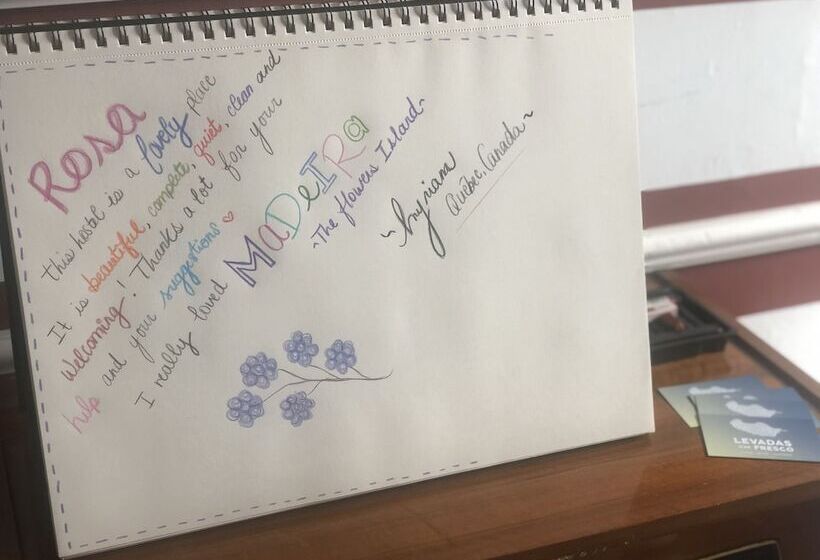 Rosa
this hostel is a lovely place
It is beautiful, complete, quiet, clean and
Welcoming! Thanks a lot for your
help and your suggestions
I really loved MaDeIRa
~The flowers Island~
Québec, Canada~
LEVADAS
FRESCO